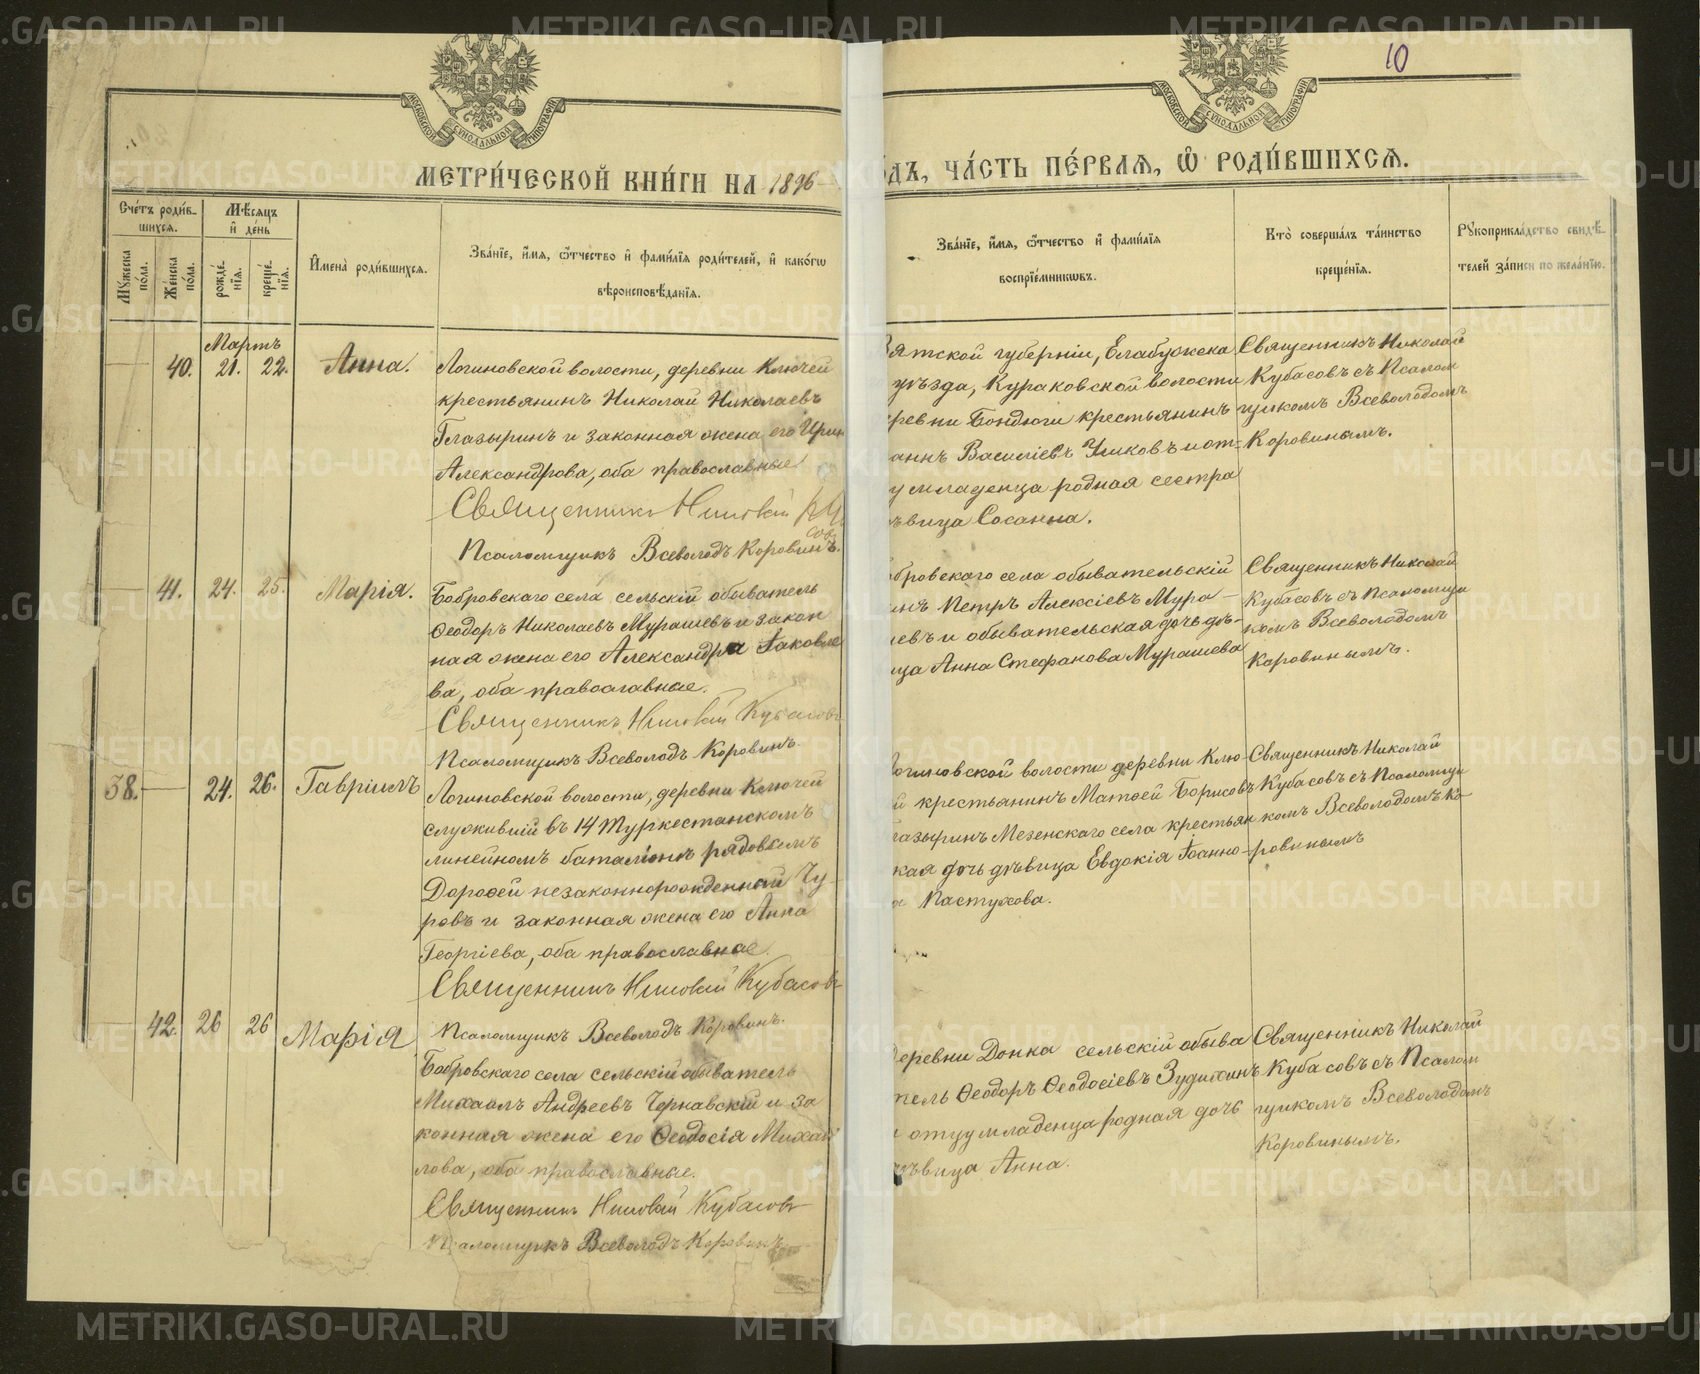 10
МОСКОВСКОЙ СѴНОДАЛЬНОЙ ТИПОГРАФІИ
МОСКОВСКОЙ СѴНОДАЛЬНОЙ ТИПОГРАФІИ
МЕТРИ́ЧЕСКОЙ КНИ́ГИ НА 1896
ДЪ, ЧА́СТЬ ПЕ́РВАЯ, Ѽ РОДИ́ВШИХСЯ.
Сче́тъ роди́в-
шихся.
Мѣ́сяцъ
и҆ де́нь
Му́жеска
по́ла.
Же́нска
по́ла.
рожде́-
нїя.
креще́-
нїя.
И҆мена̀ роди́вшихся.
Зва́нїе, и҆́мя, ѻ҆́тчество и҆ фами́лїя роди́телей, и҆ како́гѡ
вѣроисповѣ́данїя.
Зва́нїе, и҆́мя, ѻ҆́тчество и҆ фами́лїя
воспрїе́мниковъ.
Кто̀ соверша́лъ та́инство
креще́нїя.
Рукоприкла́дство свидѣ́-
телей за́писи по жела́нїю.
Мартъ
40. 21. 22. Анна.
Логиновской волости, деревни Ключей
крестьянинъ Николай Николаевъ
Глазыринъ и законная жена его Ирин
Александрова, оба православные
Священникъ Николай Ку
совъ
Псаломщикъ Всеволодъ Коровинъ.
Вятской губерніи, Елабужска
уѣзда, Кураковской волости
ревни Бондюги крестьянинъ
аннъ Василіевъ Ушковъ и от-
у младенца родная сестра
ѣвица Сосанна.
Священникъ Николай
Кубасовъ съ Псалом
щикомъ Всеволодомъ
Коровинымъ.
41. 24. 25. Марія.
Бобровскаго села сельскій обыватель
Ѳеодоръ Николаевъ Мурашевъ и закон
ная жена его Александра Іаковле
ва, оба православные.
Священникъ Николай Кубасовъ
Псаломщикъ Всеволодъ Коровинъ.
обровскаго села обывательскій
инъ Петръ Алексіевъ Мура-
евъ и обывательская дочь дѣ-
ица Анна Стефанова Мурашева
Священникъ Николай
Кубасовъ съ Псаломщи
комъ Всеволодомъ
Коровинымъ.
38. 24. 26. Гавріилъ
Логиновской волости, деревни Ключей
служившій въ 14 Туркестанскомъ
линейномъ баталіонѣ рядовымъ
Дороѳей незаконнорожденный Чу-
ровъ и законная жена его Анна
Георгіева, оба православные.
Священникъ Николай Кубасовъ
Псаломщикъ Всеволодъ Коровинъ.
Логиновской волости деревни Клю
й крестьянинъ Матѳей Борисовъ
лазыринъ Мезенскаго села крестьян
кая дочь дѣвица Евдокія Іоанно-
а Пастухова.
Священникъ Николай
Кубасовъ съ Псаломщи
комъ Всеволодомъ Ко-
ровинымъ
42. 26 26 Марія
Бобровскаго села сельскій обыватель
Михаилъ Андреевъ Чернавскій и за
конная жена его Ѳеодосія Михай
лова, оба православные.
Священникъ Николай Кубасовъ
Псаломщикъ Всеволодъ Коровинъ
Деревни Донка сельскій обыва
тель Ѳеодоръ Ѳеодосіевъ Зудихинъ
и отцу младенца родная дочь
дѣвица Анна.
Священникъ Николай
Кубасовъ съ Псалом
щикомъ Всеволодомъ
Коровинымъ.
METRIKI.GASO-URAL.RU